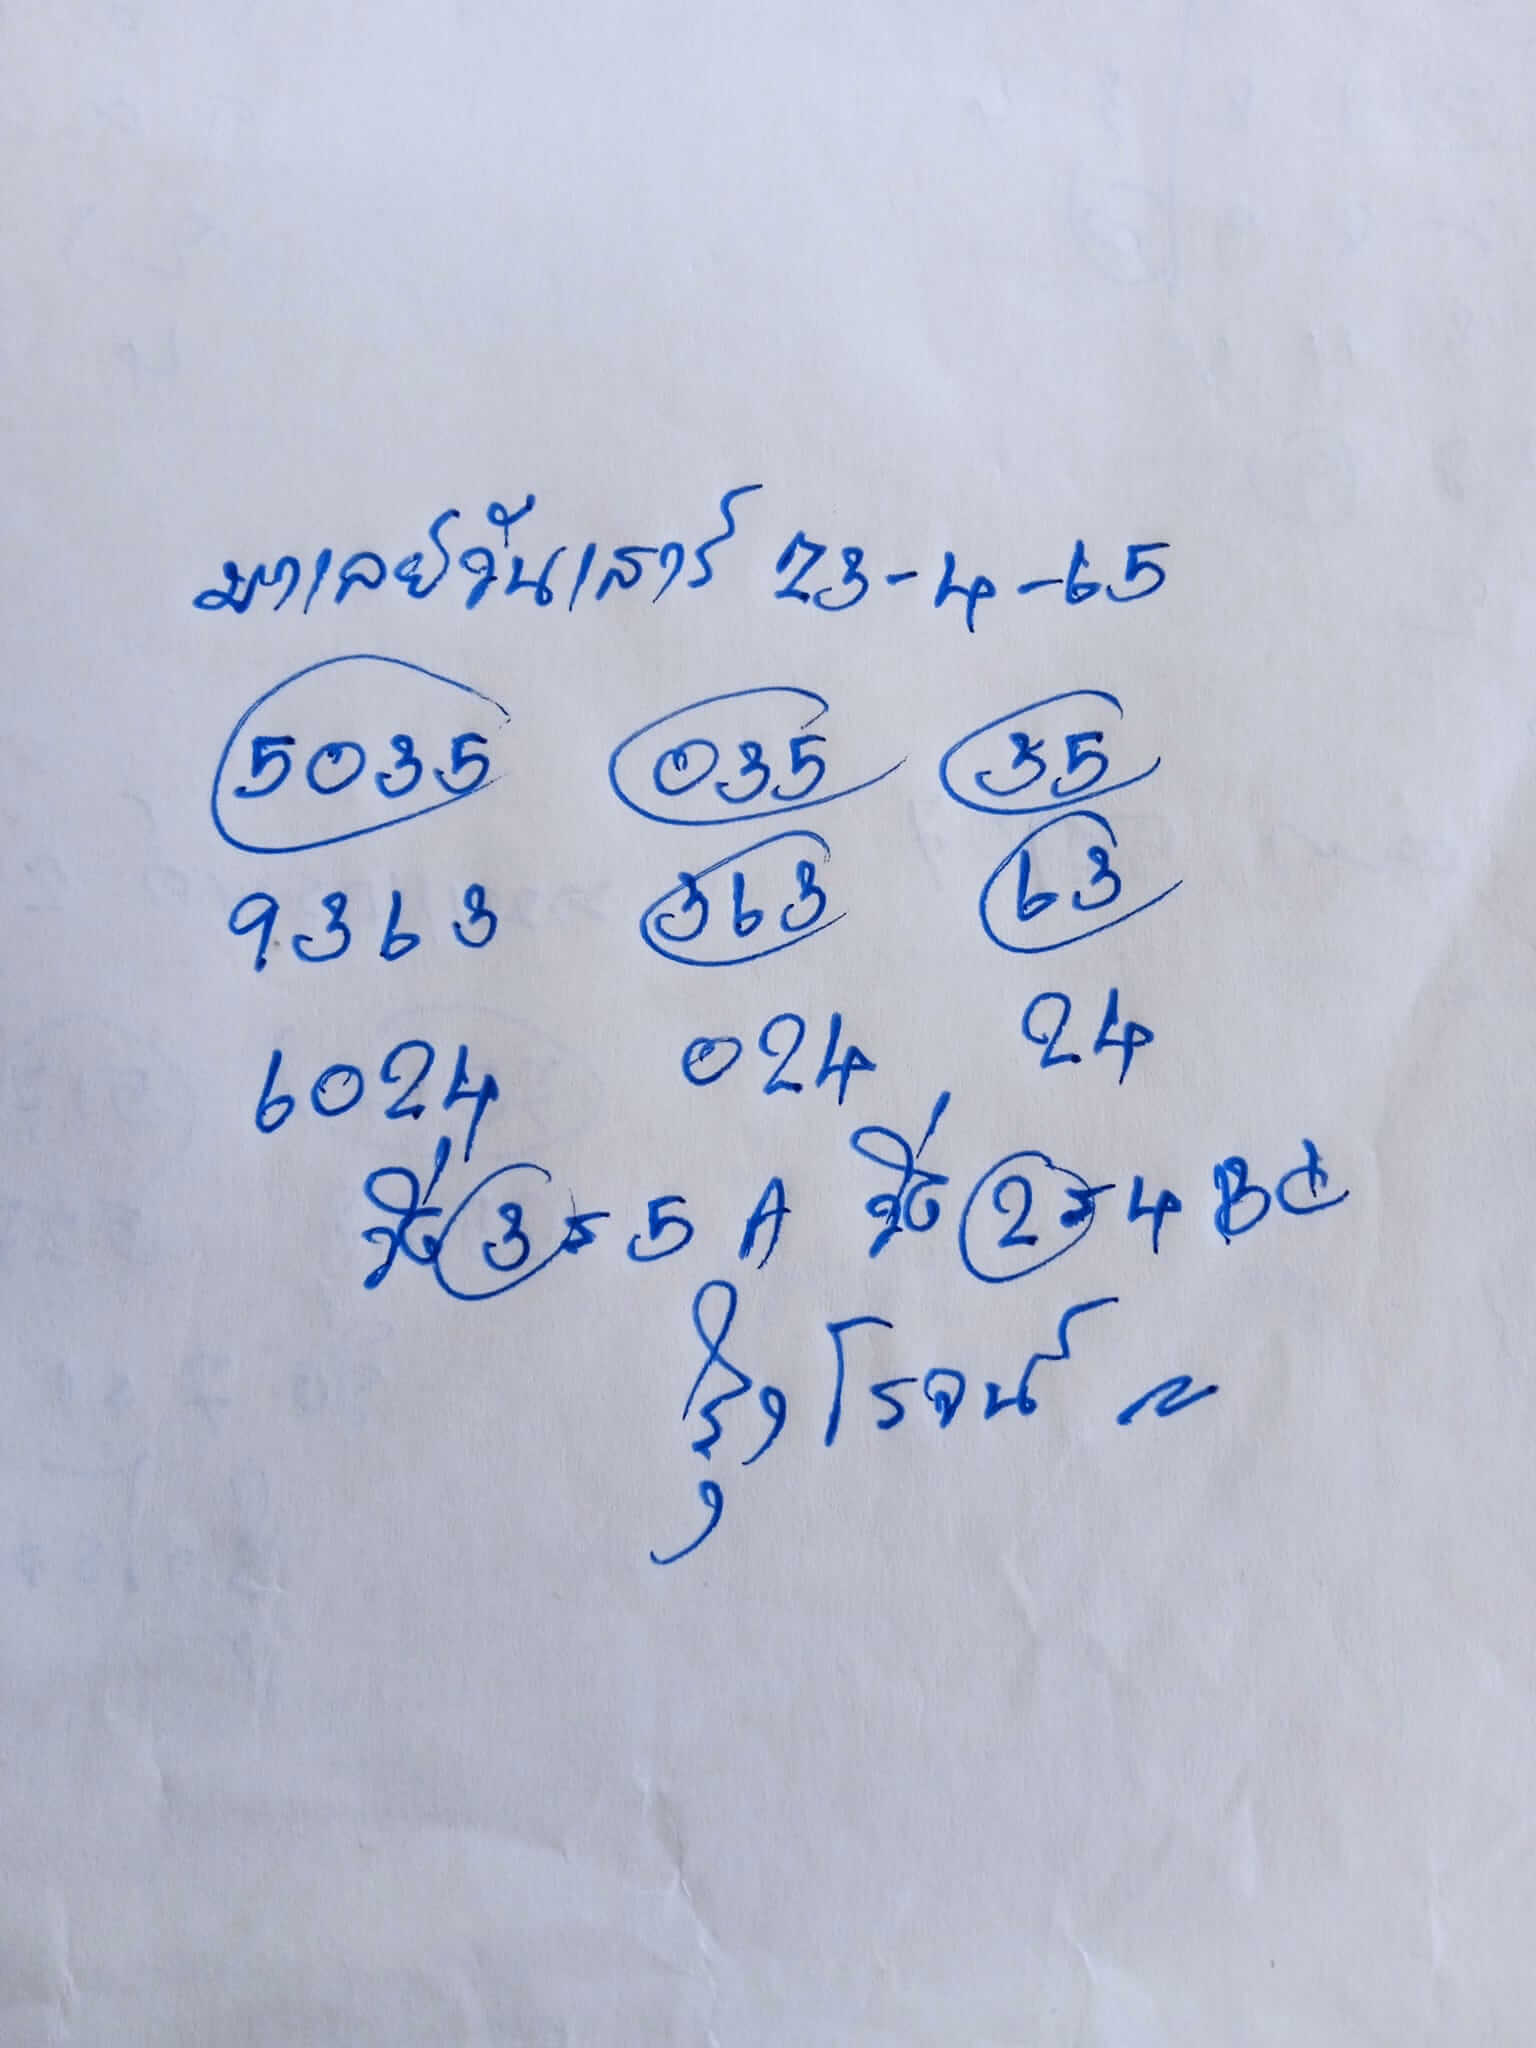 มาเลย์วันเสาร์ 23-4-65
5035 035 35
9363 363 63
6024 024 24
วิ่ง 3 ร 5 A วิ่ง 2 ร 4 BC
รุ่งโรจน์